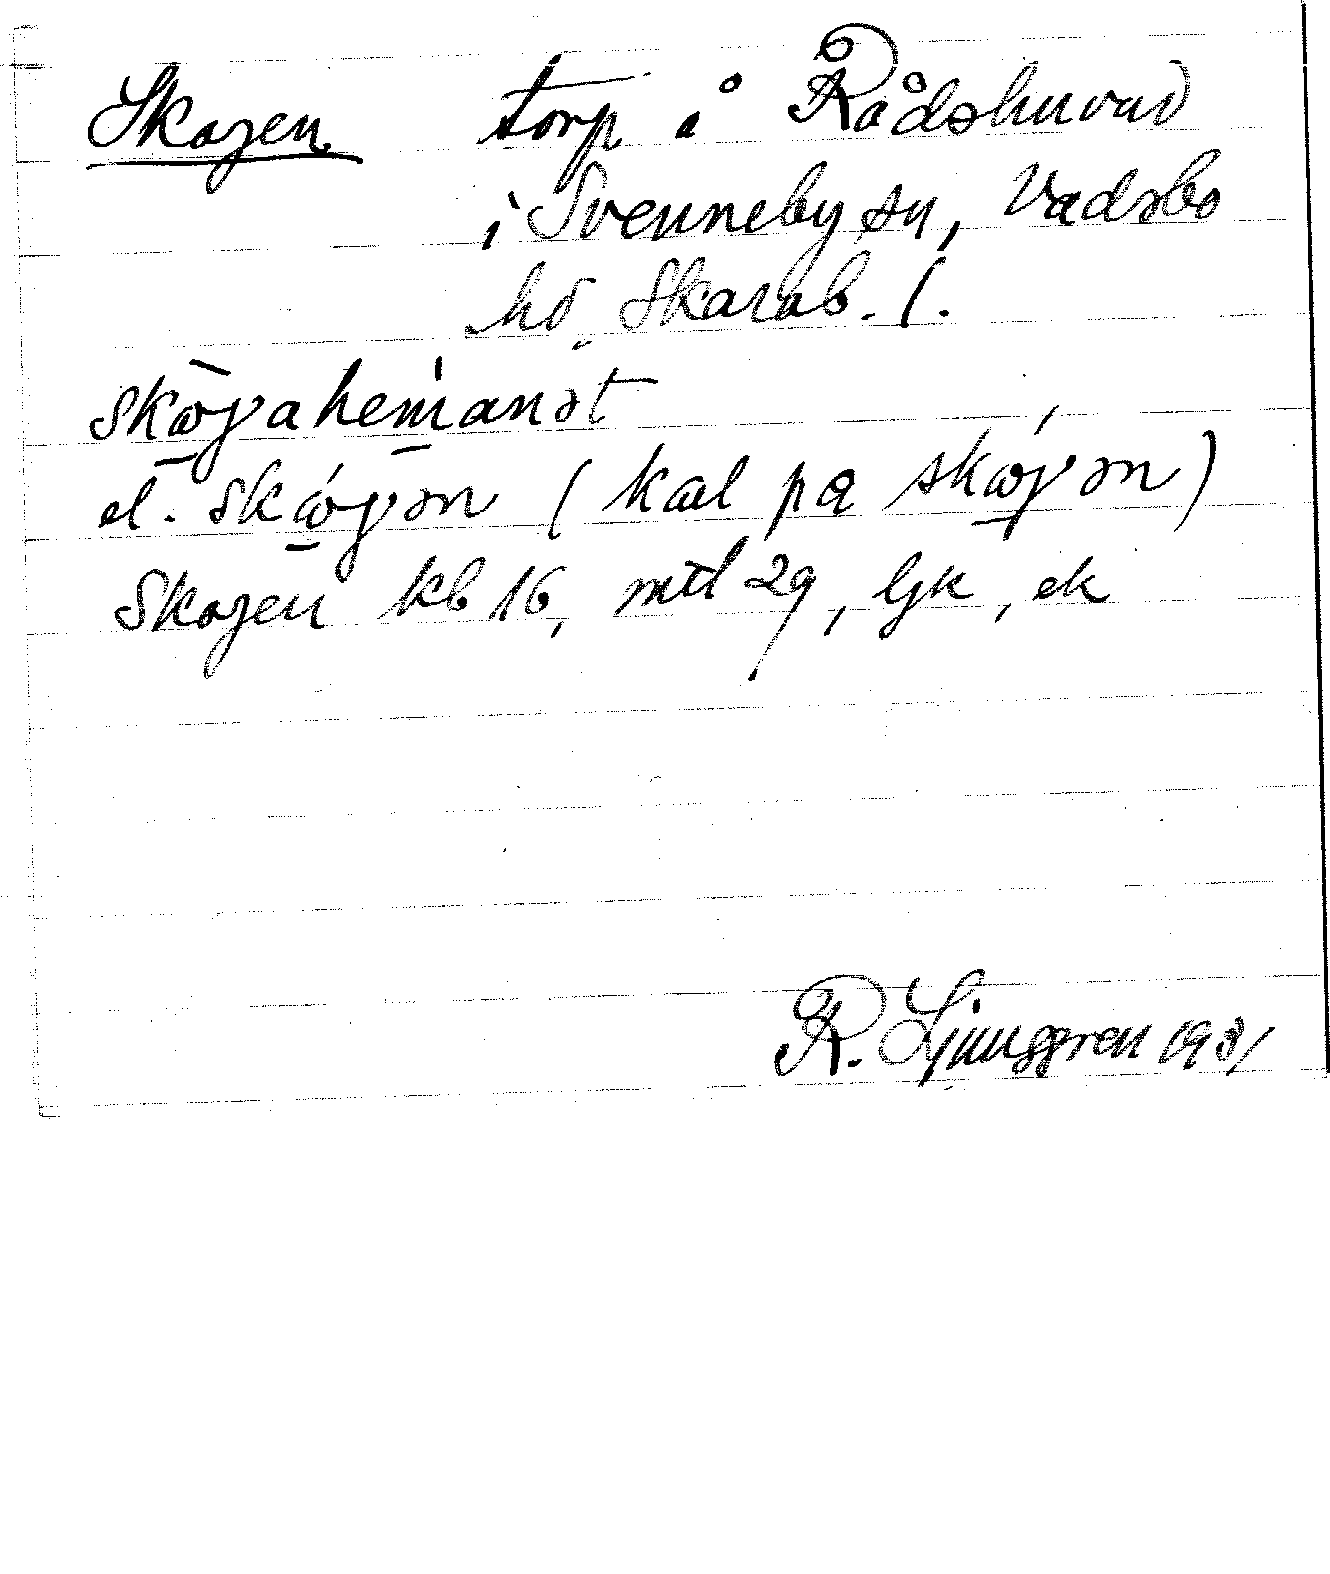 Skogen torp å Rådshuvud
i Svenneby sn, Vadsbo
hd Skarab. l.
skògahemanət
el. skógən (kal på skógən)
Skogen kb 16, mtl 29, ljk, ek
R. Ljunggren 1931